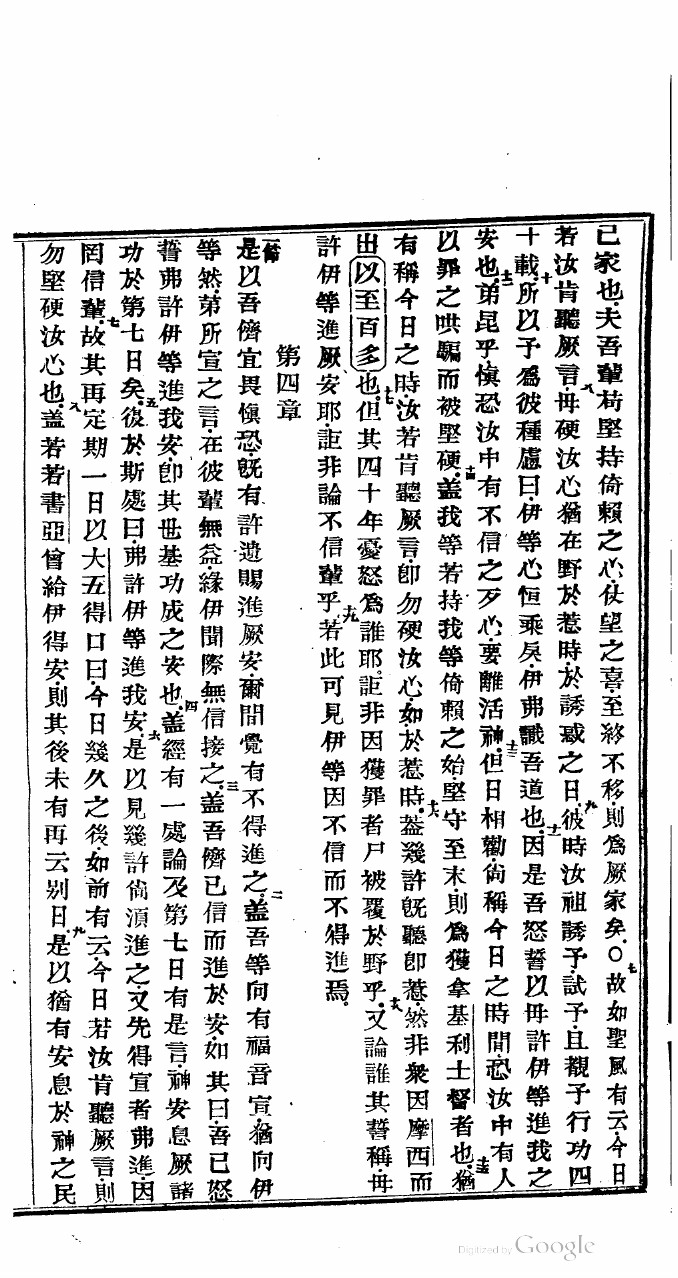 己家也夫吾輩苟堅持倚賴之心仗望之喜至終不移則為厥家矣○七故如聖風有云今日
若汝肯聽厥言八毋硬汝心猶在野於惹時於誘惑之日九彼時汝祖誘予試予且覩予行功四
十載十所以予為彼種慮曰伊等心恒乖矣伊弗識吾道也十一因是吾怒誓以毋許伊等進我之
安也十二弟昆乎慎恐汝中有不信之歹心要離活神十三但日相勸尚稱今日之時間恐汝中有人
以罪之哄騙而被堅硬十四蓋我等若持我等倚賴之始堅守至末則為獲拿基利士督者也十五猶
有稱今日之時汝若肯聽厥言即勿硬汝心如於惹時十六蓋幾許既聽即惹然非衆因摩西而
出以至百多也十七但其四十年憂怒為誰耶詎非因獲罪者尸被覆於野乎十八又論誰其誓稱毋
許伊等進厥安耶詎非論不信輩乎十九若此可見伊等因不信而不得進焉
第四章
一節是以吾儕宜畏慎恐既有許遺賜進厥安爾間覺有不得進之二蓋吾等向有福音宣猶向伊
等然第所宣之言在彼輩無益緣伊聞際無信接之三蓋吾儕已信而進於安如其曰吾已怒
誓弗許伊等進我安即其世基功成之安也四蓋經有一處論及第七日有是言神安息厥諸
功於第七日矣五復於斯處曰弗許伊等進我安六是以見幾許尚須進之又先得宣者弗進因
罔信輩七故其再定期一日以大五得口曰今日幾久之後如前有云今日若汝肯聽厥言則
勿堅硬汝心也八蓋若若書亞曾給伊得安則其後未有再云別日九是以猶有安息於神之民
Digitized by Google